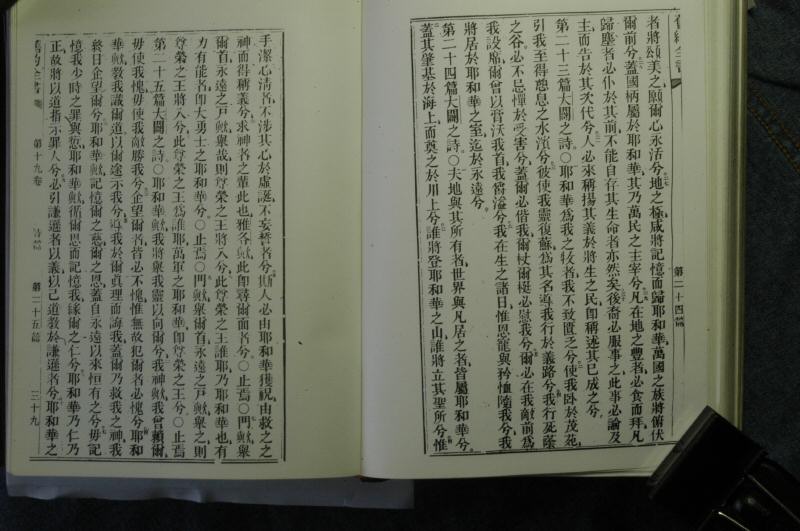 舊約全書
第二十四篇
者將頌美之願爾心永活兮地之極咸將記憶而歸耶和華萬國之族將俯伏
爾前兮蓋國柄屬於耶和華其乃萬民之主宰兮凡在地之豐者必食而拜凡
歸塵者必仆於其前不能自存其生命者亦然矣後裔必服事之此事必論及
主而告於其次代兮人必來稱揚其義於將生之民即稱述其已成之兮
第二十三篇大闢之詩○耶和華爲我之牧者我不致匱乏兮使我臥於茂苑
引我至得憩息之水濱兮彼使我靈復蘇爲其名導我行於義路兮我行死蔭
之谷必不忌憚於受害兮蓋爾必偕我爾杖爾梃必慰我兮爾必在我敵前爲
我設席爾曾以膏沃我首我觴溢兮我在生之諸日惟恩寵與矜恤隨我兮我
將居於耶和華之室迄於永遠兮
第二十四篇大闢之詩○夫地與其所有者世界與凡居之者皆屬耶和華兮
蓋其肇基於海上而奠之於川上兮誰將登耶和華之山誰將立其聖所兮惟
手潔心清者不涉其心於虛誕不妄誓者兮斯人必由耶和華獲祝由救之之
神而得稱義兮求神者之輩此也雅各歟此即尋爾面者兮○止焉○門歟舉
爾首永遠之戶歟舉哉則尊榮之王將入兮此尊榮之王誰耶乃耶和華也有
力有能者即大勇士之耶和華兮○止焉○門歟舉爾首永遠之戶歟舉之則
尊榮之王將入兮此尊榮之王爲誰耶萬軍之耶和華即尊榮之王兮○止焉
第二十五篇大闢之詩○耶和華歟我將舉我靈以向爾兮我神歟我會賴爾
毋使我愧毋使我敵勝我兮企望爾者皆必不愧惟無故犯爾者必愧兮耶和
華歟教我識爾道以爾途示我兮導我於爾眞理而誨我蓋爾乃救我之神我
終日企望爾兮耶和華歟記憶爾之慈爾之恩蓋自永遠以來恒有之兮毋記
憶我少時之罪與愆耶和華歟循爾恩而記憶我緣爾之仁兮耶和華乃仁乃
正故將以道指示罪人兮必引謙遜者以義以己道教於謙遜者兮耶和華之
舊約全書
第十九卷
詩篇
第二十五篇
三十九